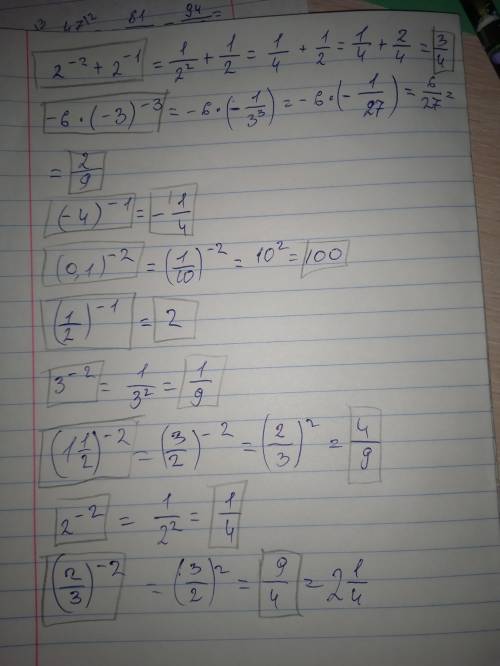 2⁻² + 2⁻¹ = 1/2² + 1/2 = 1/4 + 1/2 = 1/4 + 2/4 = 3/4
-6 · (-3)⁻³ = -6 · (-1/3³) = -6 · (-1/27) = 6/27 =
= 2/9
(-4)⁻¹ = -1/4
(0,1)⁻² = (1/10)⁻² = 10² = 100
(1/2)⁻¹ = 2
3⁻² = 1/3² = 1/9
(1 1/2)⁻² = (3/2)⁻² = (2/3)² = 4/9
2⁻² = 1/2² = 1/4
(2/3)⁻² = (3/2)² = 9/4 = 2 1/4